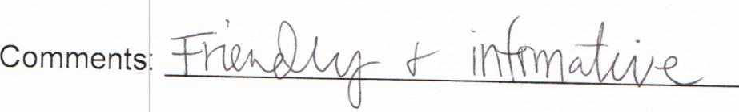 Comments: Friendly + informative